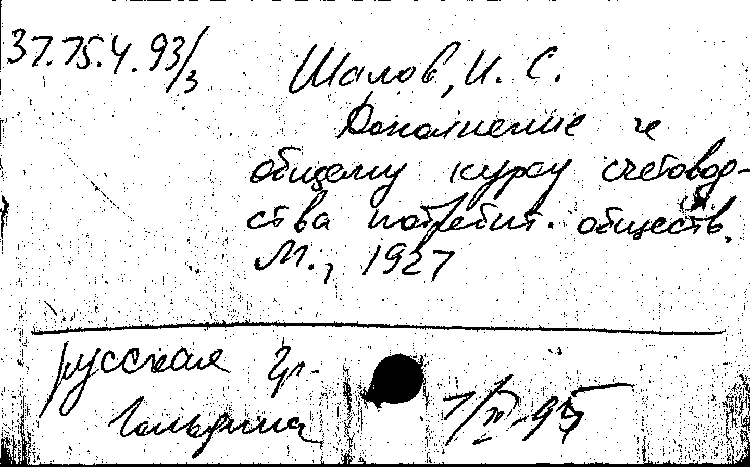 37.75.4.93/3
Шалов, И. С.
Дополнение к
общему курсу счетовод-
ства потребит. обществ.
М., 1927
русская гр.
1/III-95